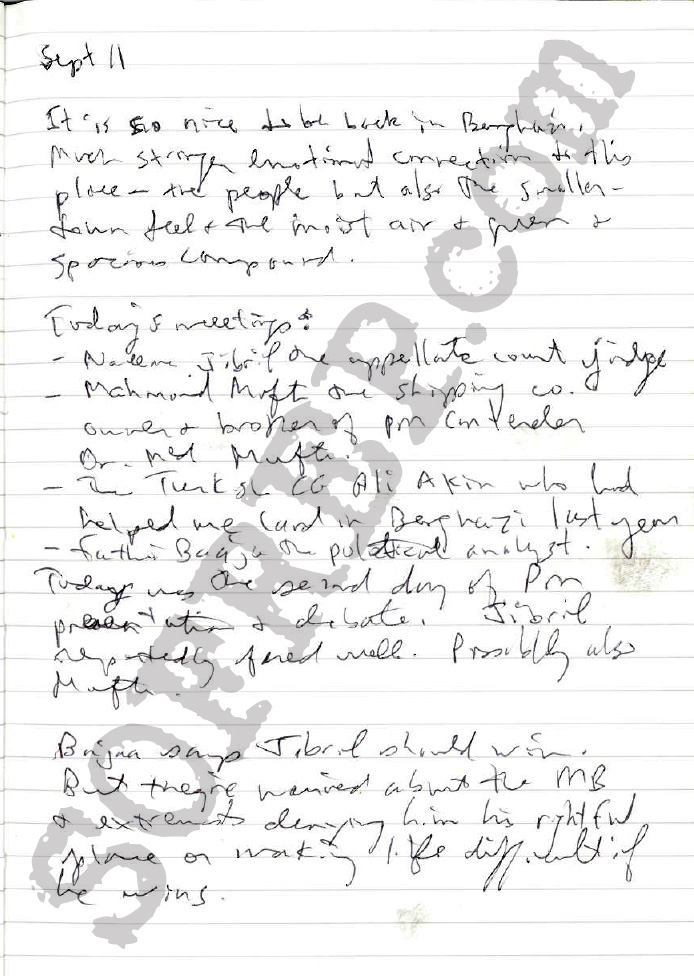 Sept 11
It is so nice to be back in Benghazi.
Much stronger emotional connection to this
place – the people but also the smaller-
town feel & the moist air & green &
spacious compound.
Today's meetings:
- Naeema Jibril the appellate court judge
- Mahmoud Mufti the shipping co.
owner & broker of PM contender
Dr. Mufti.
- The Turkish CG Ali Akin who had
helped me land in Benghazi last year
- Fathi Baaja the political analyst.
Today was the second day of PM
presentation & debate. Jibril
reportedly fared well. Possibly also
Mufti.
Baajaa says Jibril should win.
But they're worried about the MB
& extremists denying him his rightful
place or making life difficult if
he wins.
SOFREP.com